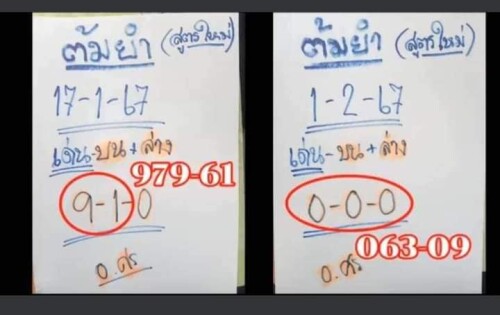 ต้มยำ (สูตรใหม่)
17-1-67
เด่น-บน+ล่าง
979-61
9-1-0
อ.ศร
ต้มยำ (สูตรใหม่)
1-2-67
เด่น-บน+ล่าง
0-0-0
063-09
อ.ศร